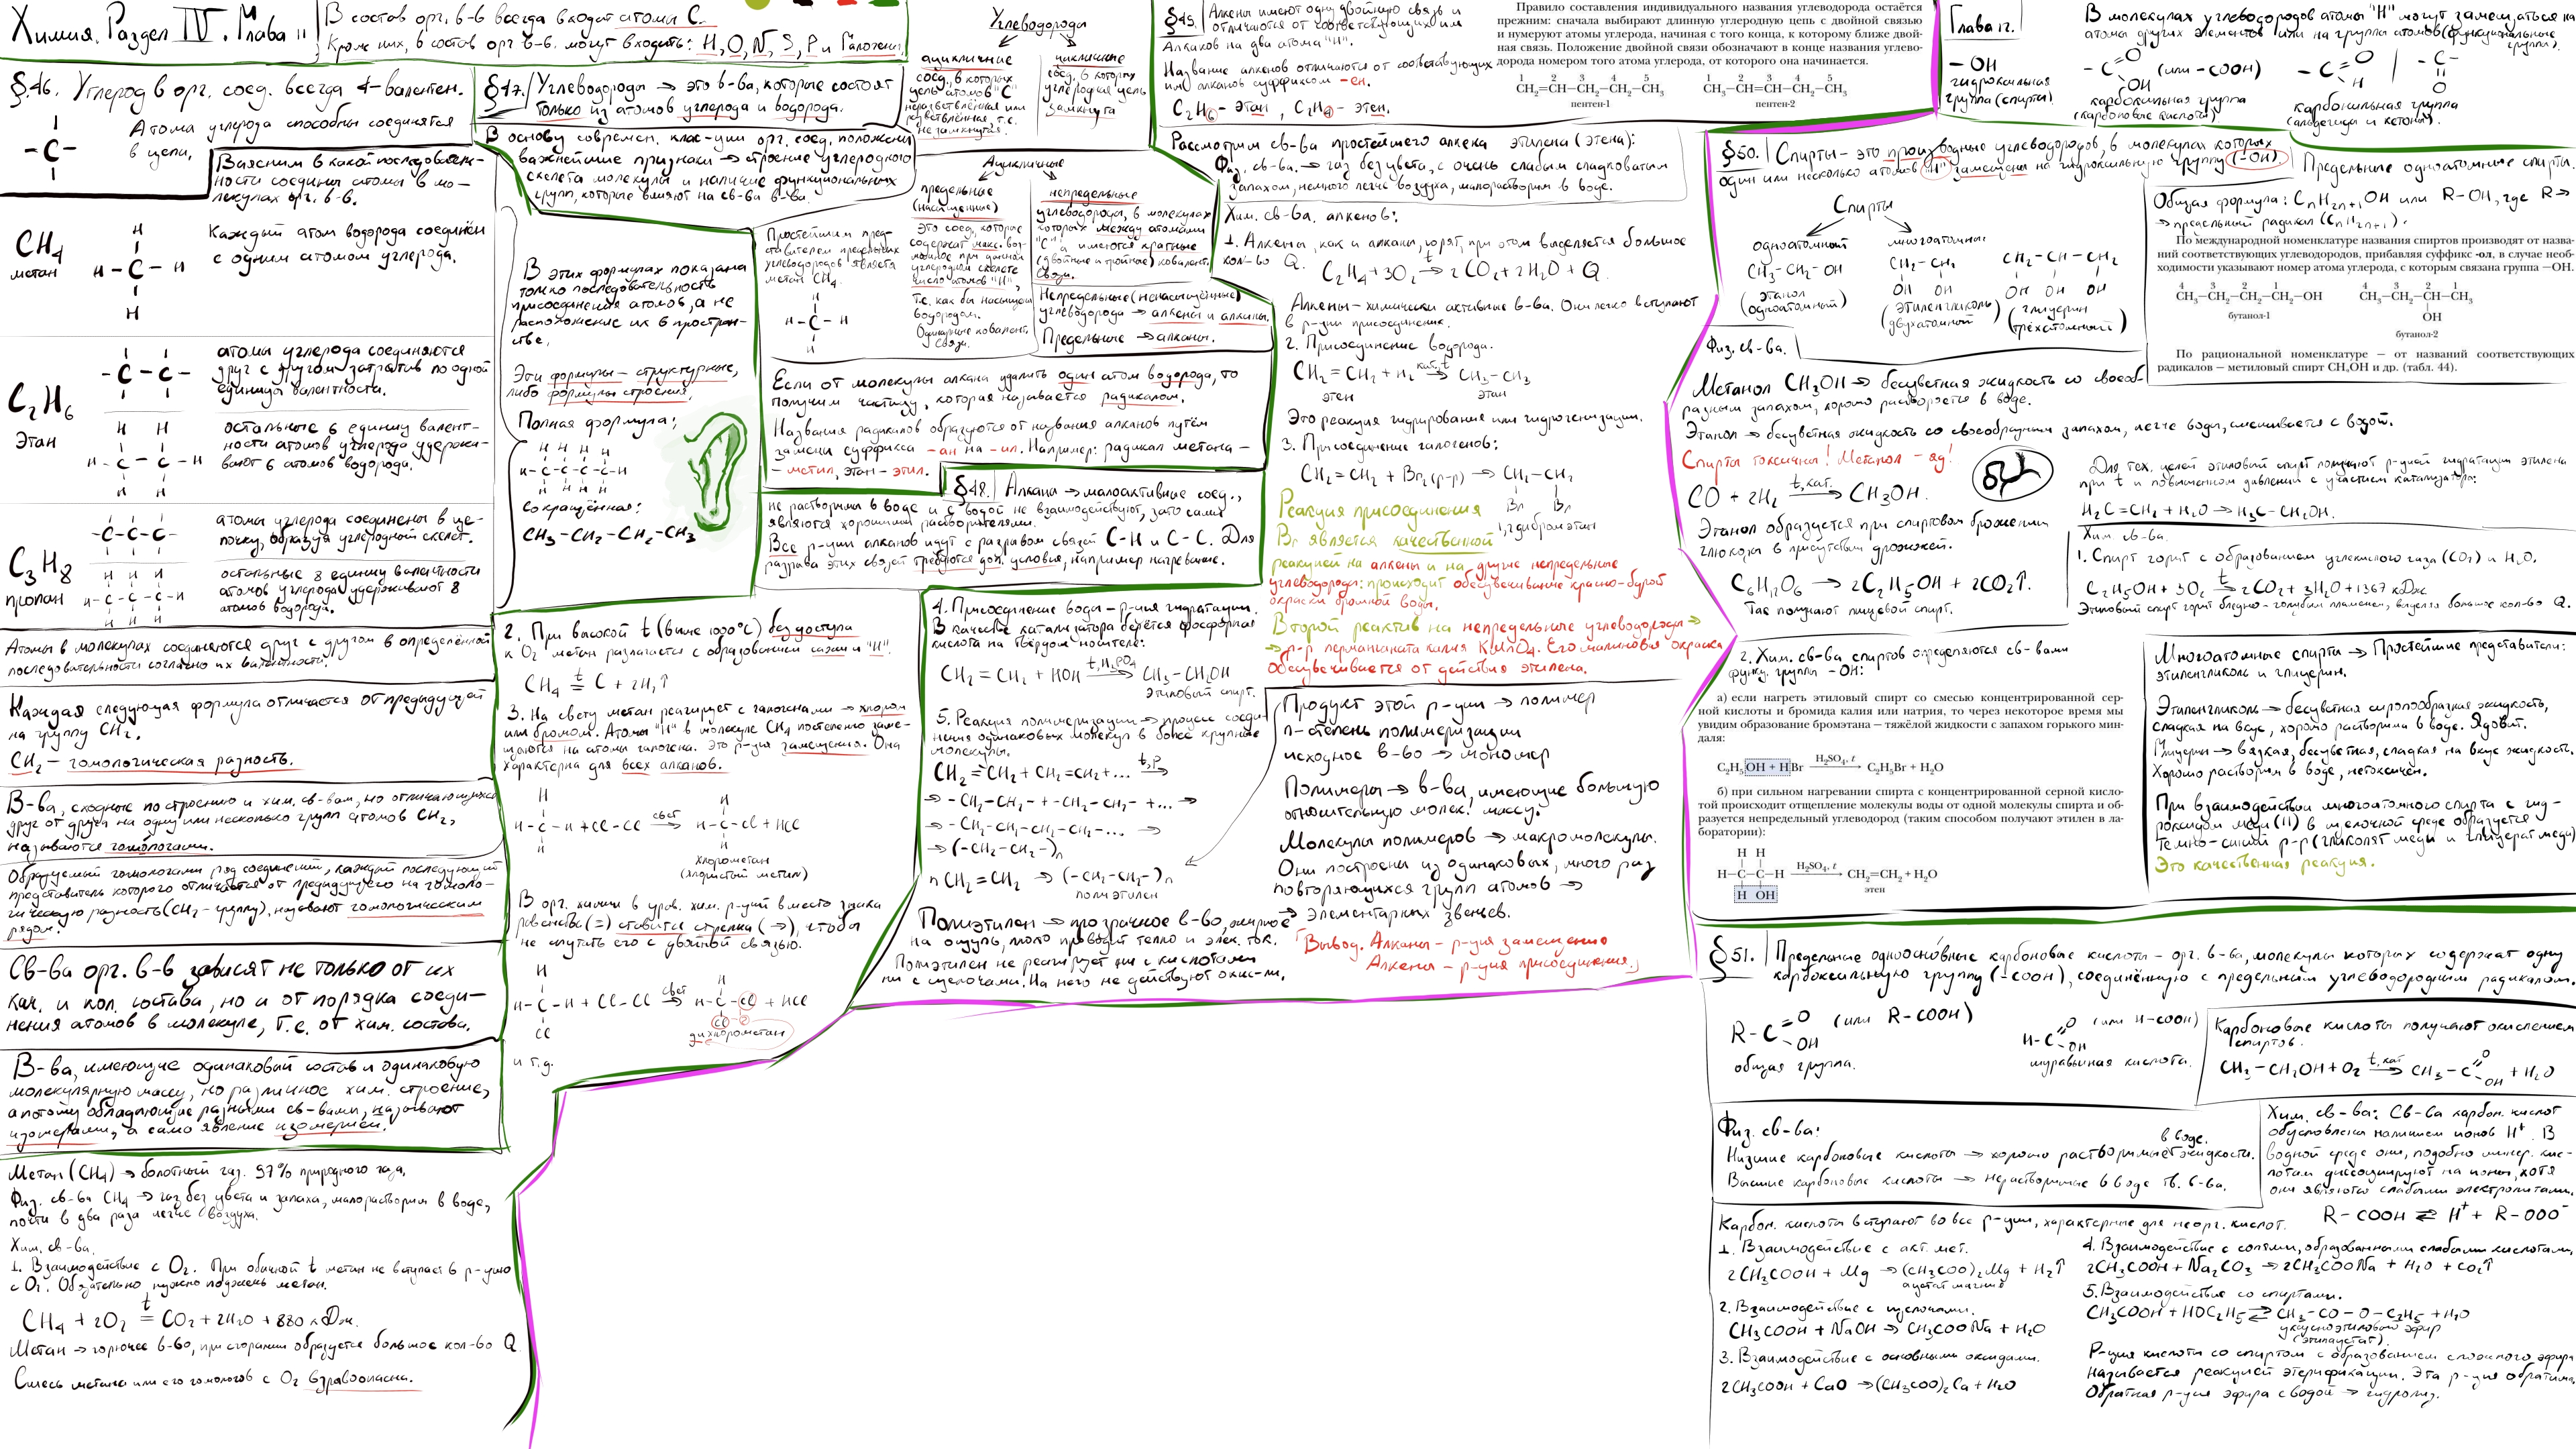 Химия. Раздел IV. Глава 11
В состав орг. в-в всегда входят атомы С.
Кроме них, в состав орг в-в. могут входить: H, O, N, S, P и Галогены.
§46. Углерод в орг. соед. всегда 4-валентен.
Атомы углерода способны соединятся
в цепи.
Выясним в какой последователь-
ности соедины атомы в мо-
лекулах орг. в-в.
CH4
метан
Каждый атом водорода соединён
с одним атомом углерода.
C2H6
Этан
атомы углерода соединяются
друг с другом затратив по одной
единицы валентности.
остальные 6 единиц валент-
ности атомов углерода удержи-
вают 6 атомов водорода.
C3H8
пропан
атомы углерода соединены в це-
почку, образуя углеродный скелет.
остальные 8 единиц валентности
атомов углерода удерживают 8
атомов водорода.
Атомы в молекулах соединяются друг с другом в определённой
последовательности согласно их валентности.
Каждая следующая формула отличается от предыдущей
на группу CH2.
CH2 — гомологическая разность.
В-ва, сходные по строению и хим. св-вам, но отличающихся
друг от друга на одну или несколько групп атомов CH2,
называются гомологами.
Образуемый гомологами ряд соединений, каждый последующий
представитель которого отличается от предыдущего на гомоло-
гическую разность (CH2 - группу), называют гомологическим
рядом.
Св-ва орг. в-в зависят не только от их
кач. и кол. состава, но и от порядка соеди-
нения атомов в молекуле, т.е. от хим. состава.
В-ва, имеющие одинаковый состав и одинаковую
молекулярную массу, но различное хим. строение,
а потому обладающие разными св-вами, называют
изомерами, а само явление изомерией.
Метан (CH4) → болотный газ. 97% природного газа.
Физ. св-ва CH4 → газ без цвета и запаха, малорастворим в воде,
почти в два раза легче воздуха.
Хим. св-ва.
1. Взаимодействие с O2. При обычной t метан не вступает в р-цию
с O2. Обязательно нужно поджечь метан.
CH4 + 2O2 t= CO2 + 2H2O + 880 кДж.
Метан → горючее в-во, при сгорании образуется большое кол-во Q
Смесь метана или его гомологов с O2 взрывоопасна.
§47. Углеводороды → это в-ва, которые состоят
только из атомов углерода и водорода.
В основу современ. клас-ции орг. соед. положены
важнейшие признаки → строение углеродного
скелета молекулы и наличие функциональных
групп, которые влияют на св-ва в-ва.
В этих формулах показана
только последовательность
присоединения атомов, а не
расположение их в простран-
стве.
Эти формулы — структурные,
либо формулы строения.
Полная формула:
сокращённая:
CH3 - CH2 - CH2 - CH3
2. При высокой t (выше 1000°C) без доступа
к O2 метан разлагается с образованием сажи и "H".
CH4 t= C + 2H2↑
3. На свету метан реагирует с галогенами → хлором
или бромом. Атомы "H" в молекуле CH4 постепенно заме-
щаются на атомы галогена. Это р-ция замещения. Она
характерна для всех алканов.
H - C - H + Cl - Cl свет → H - C - Cl + HCl
хлорометан
(хлористый метил)
В орг. химии в уров. хим. р-ций вместо знака
равенства (=) ставится стрелка (→), чтобы
не спутать его с двойной связью.
H - C - H + Cl - Cl свет → H - C - Cl + HCl
дихлорометан
и т.д.
Углеводороды
ациклические
соед. в которых
цепь атомов "C"
неразветвлённая или
разветвлённая, т.е.
не замкнутая.
циклические
соед. в которых
углеродная цепь
замкнута
Ациклические
предельные
(насыщенные)
Это соед, которые
содержат макс. воз-
можное при данном
углеродном скелете
число атомов "H",
т.е. как бы насыщен
водородом.
Одинарные ковалент.
связи.
непредельные
углеводороды, в молекулах
которых между атомами
"C" имеются кратные
(двойные и тройные) ковалент.
связи.
Непредельные (ненасыщенные)
углеводороды → алкены и алкины.
Предельные → алканы.
Простейшим пред-
ставителем предельных
углеводородов является
метан CH4.
Если от молекулы алкана удалить один атом водорода, то
получим частицу, которая называется радикалом.
Названия радикалов образуются от названия алканов путём
замены суффикса -ан на -ил. Например: радикал метана —
— метил, этан - этил.
§48. Алканы → малоактивные соед.,
не растворимы в воде и с водой не взаимодействуют, зато сами
являются хорошими растворителями.
Все р-ции алканов идут с разрывом связей C-H и C-C. Для
разрыва этих связей требуются доп. условия, например нагревание.
4. Присоединение воды - р-ция гидратации.
В качестве катализатора берётся фосфорная
кислота на твёрдом носителе:
CH2 = CH2 + HOH t, H3PO4 → CH3 - CH2OH
этиловый спирт.
5. Реакция полимеризации → процесс соеди-
нения одинаковых молекул в более крупные
молекулы.
CH2 = CH2 + CH2 = CH2 + ... t,p →
→ - CH2 - CH2 - + - CH2 - CH2 - + ... →
→ - CH2 - CH2 - CH2 - CH2 - ... →
→ (-CH2 - CH2 -)n
n CH2 = CH2 → (-CH2 - CH2 -)n
полиэтилен
Полиэтилен → прозрачное в-во, жирное
на ощупь, мало проводит тепло и элек. ток.
Полиэтилен не реагирует ни с кислотами
ни с щелочами. На него не действуют окис-ли.
§49. Алкены имеют одну двойную связь и
отличаются от соответствующих им
Алканов на два атома "H".
Название алкенов отличаются от соответствующих
им алканов суффиксом -ен.
C2H6 - этан , C2H4 - этен.
Правило составления индивидуального названия углеводорода остаётся
прежним: сначала выбирают длинную углеродную цепь с двойной связью
и нумеруют атомы углерода, начиная с того конца, к которому ближе двой-
ная связь. Положение двойной связи обозначают в конце названия углево-
дорода номером того атома углерода, от которого она начинается.
1 2 3 4 5 1 2 3 4 5
CH2=CH—CH2—CH2—CH3 CH3—CH=CH—CH2—CH3
пентен-1 пентен-2
Рассмотрим св-ва простейшего алкена этилена (этена):
Физ. св-ва. → газ без цвета, с очень слабым сладковатым
запахом, немного легче воздуха, малорастворим в воде.
Хим. св-ва. алкенов:
1. Алкены, как и алканы, горят, при этом выделяется большое
кол-во Q.
C2H4 + 3O2 t→ 2CO2 + 2H2O + Q.
Алкены - химически активные в-ва. Они легко вступают
в р-ции присоединения.
2. Присоединение водорода.
CH2 = CH2 + H2 кат, t → CH3 - CH3
этен этан
Это реакция гидрирования или гидрогенизации.
3. Присоединение галогенов:
CH2 = CH2 + Br2 (р-р) → CH2 - CH2
Br Br
1,2 дибромэтан
Реакция присоединения
Br является качественной
реакцией на алкены и на другие непредельные
углеводороды: происходит обесцвечивание красно-бурой
окраски бромной воды.
Второй реактив на непредельные углеводороды →
→ р-р перманганата калия KMnO4. Его малиновая окраска
обесцвечивается от действия этилена.
Продукт этой р-ции → полимер
n-степень полимеризации
исходное в-во → мономер
Полимеры → в-ва, имеющие большую
относительную молек. массу.
Молекулы полимеров → макромолекулы.
Они построены из одинаковых, много раз
повторяющихся групп атомов →
→ элементарных звеньев.
Вывод. Алканы - р-ция замещения
Алкены - р-ция присоединения.
Глава 12.
В молекулах углеводородов атомы "H" могут замещаться на
атомы других элементов или на группы атомов (функциональные
группы).
- OH
гидроксильная
группа (спирты)
- C =O OH (или -COOH)
карбоксильная группа
(карбоновые кислоты)
- C =O H | - C - =O
карбонильная группа
(альдегиды и кетоны).
§50. Спирты - это производные углеводородов, в молекулах которых
один или несколько атомов "H" замещены на гидроксильную группу (-OH)
Предельные одноатомные спирты.
Спирты
одноатомный многоатомные
CH3 - CH2 - OH CH2 - CH2 CH2 - CH - CH2
OH OH OH OH OH
(этанол (одноатомный) (этиленгликоль двухатомный) (глицерин (трёхатомный)
Общая формула: CnH2n+1OH или R-OH, где R →
→ предельный радикал (CnH2n+1).
По международной номенклатуре названия спиртов производят от назва-
ний соответствующих углеводородов, прибавляя суффикс -ол, в случае необ-
ходимости указывают номер атома углерода, с которым связана группа —OH.
4 3 2 1 4 3 2 1
CH3—CH2—CH2—CH2—OH CH3—CH2—CH—CH3
OH
бутанол-1 бутанол-2
По рациональной номенклатуре — от названий соответствующих
радикалов — метиловый спирт CH3OH и др. (табл. 44).
Физ. св-ва.
Метанол CH3OH → бесцветная жидкость со своеоб-
разным запахом, хорошо растворяется в воде.
Этанол → бесцветная жидкость со своеобразным запахом, легче воды, смешивается с водой.
Спирты токсичны! Метанол - яд!
CO + 2H2 t, кат. → CH3OH.
Этанол образуется при спиртовом брожении
глюкозы в присутствии дрожжей.
C6H12O6 → 2C2H5OH + 2CO2↑.
Так получают пищевой спирт.
Для тех. целей этиловый спирт получают р-цией гидратации этилена
при t и повышенном давлении с участием катализатора:
H2C = CH2 + H2O → H3C - CH2OH.
Хим св-ва.
1. Спирт горит с образованием углекислого газа (CO2) и H2O.
C2H5OH + 3O2 t→ 2CO2 + 3H2O + 1367 кДж
Этиловый спирт горит бледно-голубым пламенем, выделяя большое кол-во Q.
2. Хим. св-ва спиртов определяются св-вами
функц. группы -OH:
а) если нагреть этиловый спирт со смесью концентрированной сер-
ной кислоты и бромида калия или натрия, то через некоторое время мы
увидим образование бромэтана — тяжёлой жидкости с запахом горького мин-
даля:
C2H5OH + HBr H2SO4, t → C2H5Br + H2O
б) при сильном нагревании спирта с концентрированной серной кисло-
той происходит отщепление молекулы воды от одной молекулы спирта и об-
разуется непредельный углеводород (таким способом получают этилен в ла-
боратории):
H H
H—C—C—H H2SO4, t → CH2=CH2 + H2O
H OH этен
Многоатомные спирты → Простейшие представители:
этиленгликоль и глицерин.
Этиленгликоль → бесцветная сиропообразная жидкость,
сладкая на вкус, хорошо растворима в воде. Ядовит.
Глицерин → вязкая, бесцветная, сладкая на вкус жидкость.
Хорошо растворим в воде, нетоксичен.
При взаимодействии многоатомного спирта с гид-
роксидом меди (II) в щелочной среде образуется
темно-синий р-р (гликолят меди и глицерат меди)
Это качественная реакция.
§51. Предельные одноосновные карбоновые кислоты - орг. в-ва, молекулы которых содержат одну
карбоксильную группу (-COOH), соединённую с предельным углеводородным радикалом.
R - C =O OH (или R-COOH)
общая группа.
H - C =O OH (или H-COOH)
муравьиная кислота.
Карбоновые кислоты получают окислением
спиртов.
CH3 - CH2OH + O2 t, кат → CH3 - C =O OH + H2O
Физ. св-ва:
Низшие карбоновые кислоты → хорошо растворимые в воде жидкости.
Высшие карбоновые кислоты → нерастворимые в воде тв. в-ва.
Хим. св-ва: Св-ва карбон. кислот
обусловлены наличием ионов H+. В
водной среде они, подобно минер. кис-
лотам диссоциируют на ионы, хотя
они являются слабыми электролитами.
R - COOH ⇄ H+ + R-OOO-
Карбон. кислоты вступают во все р-ции, характерные для неорг. кислот.
1. Взаимодействие с акт. мет.
2CH3COOH + Mg → (CH3COO)2Mg + H2↑
ацетат магния
2. Взаимодействие с щелочами.
CH3COOH + NaOH → CH3COONa + H2O
3. Взаимодействие с основными оксидами.
2CH3COOH + CaO → (CH3COO)2Ca + H2O
4. Взаимодействие с солями, образованными слабыми кислотами
2CH3COOH + Na2CO3 → 2CH3COONa + H2O + CO2↑
5. Взаимодействие со спиртами.
CH3COOH + HOC2H5 ⇄ CH3 - CO - O - C2H5 + H2O
уксусноэтиловый эфир
(этилацетат).
Р-ция кислоты со спиртом с образованием сложного эфира
называется реакцией этерификации. Эта р-ция обратима.
Обратная р-ция эфира с водой → гидролиз.